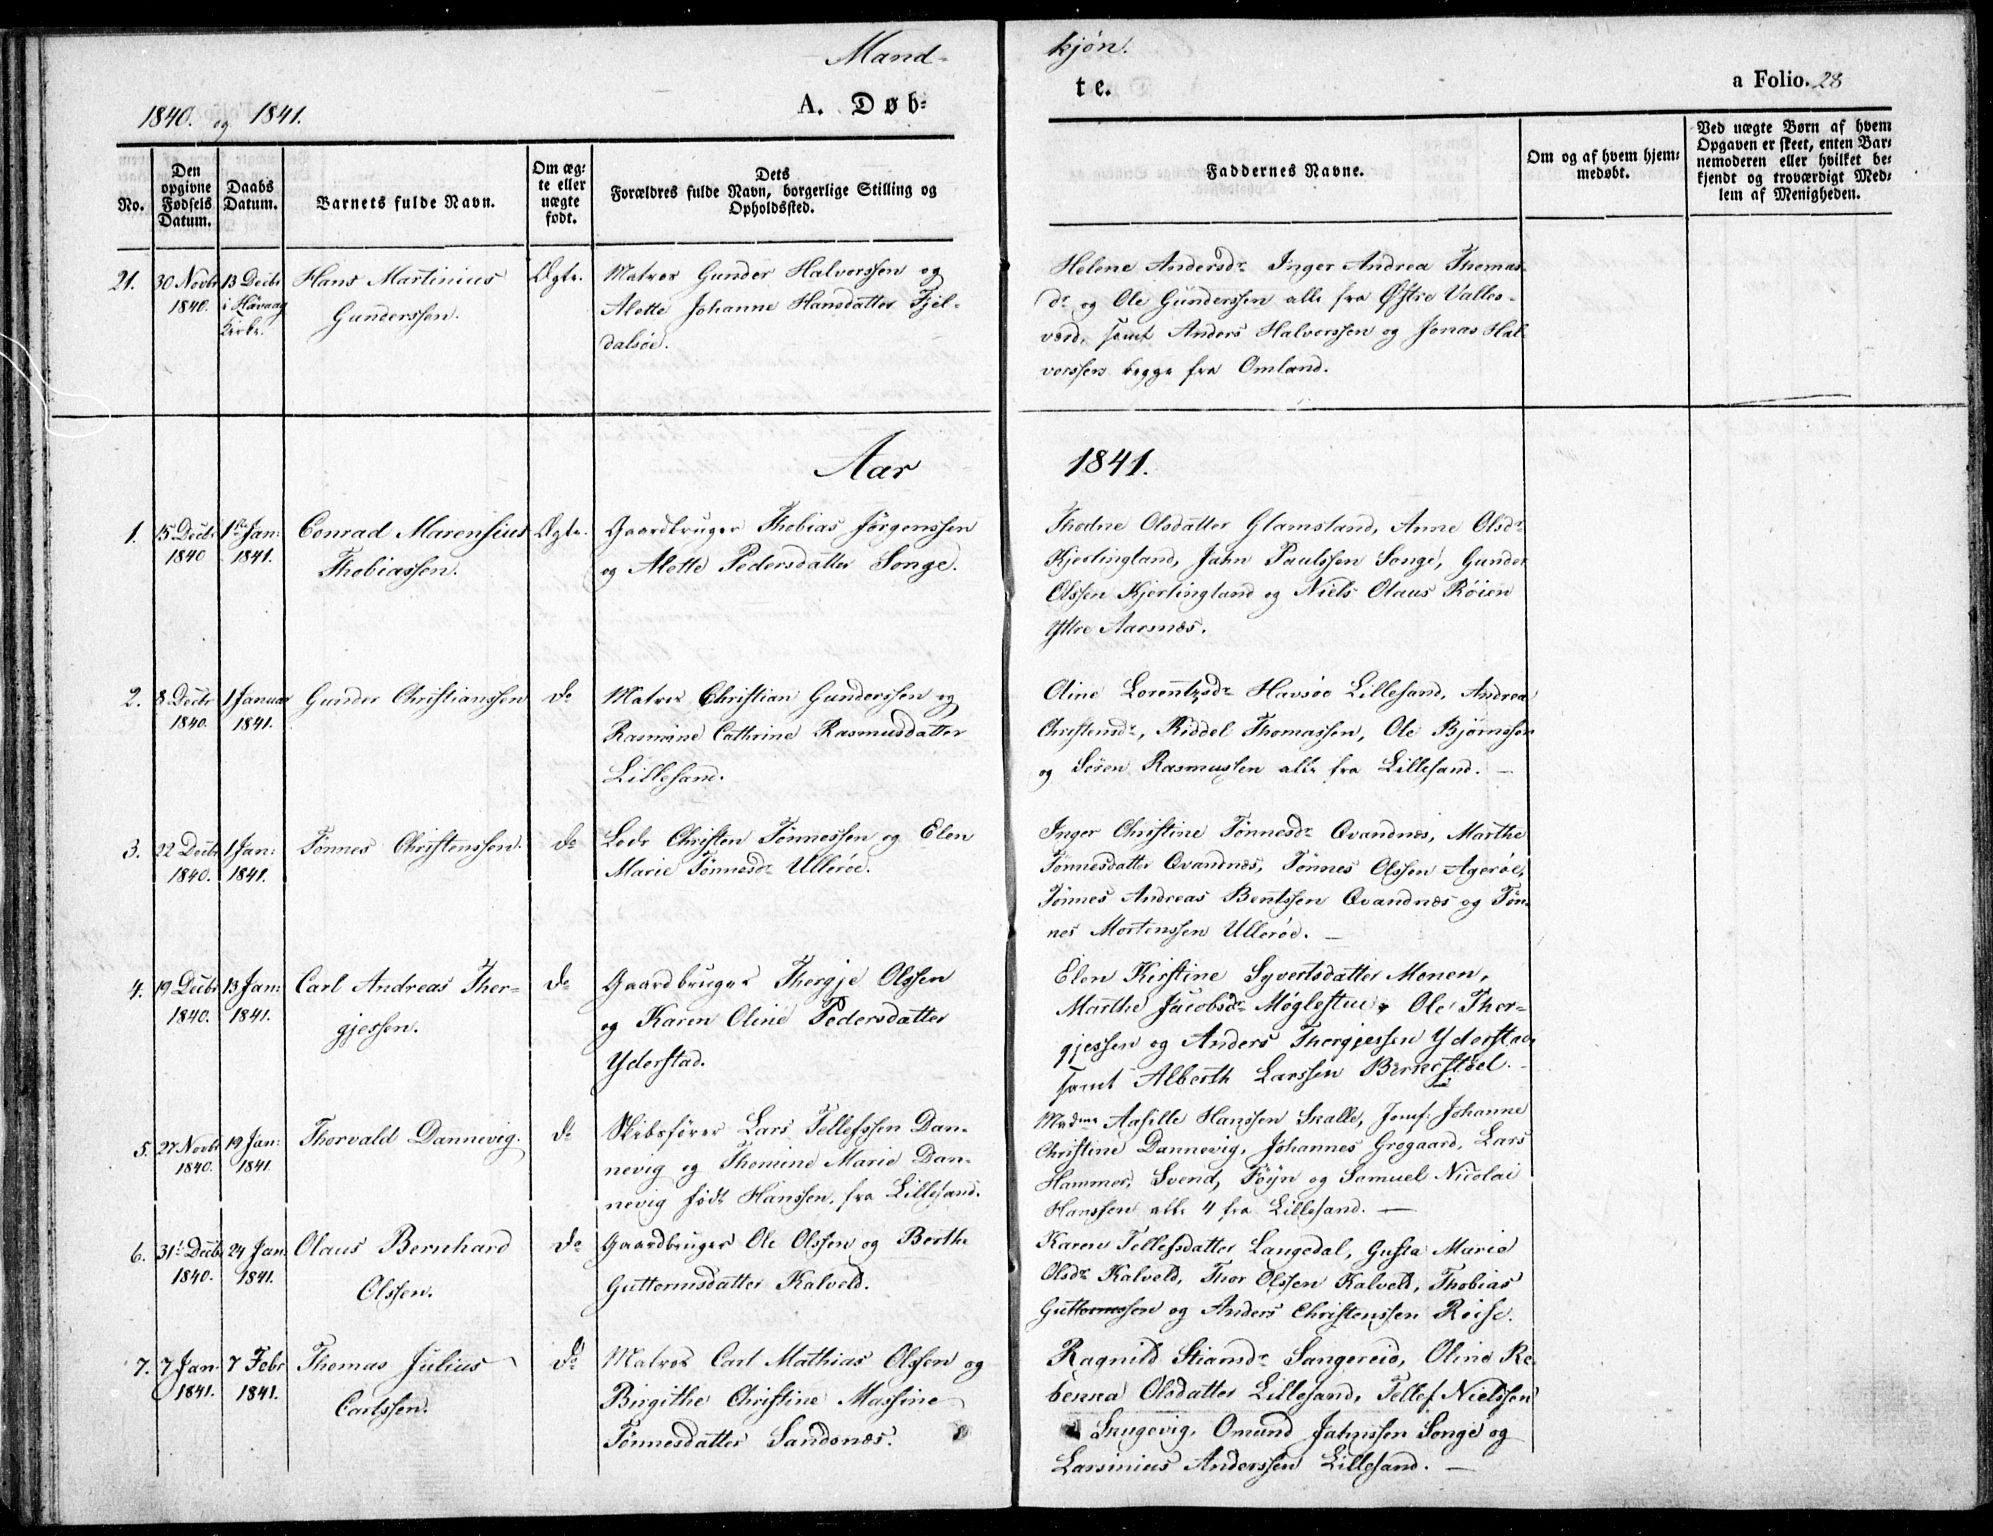 Mand-
kjøn.
1840. og 1841.
A. Døb-
te.
a Folio. 28
No.
Den opgivne Fødsels Datum.
Daabs Datum.
Barnets fulde Navn.
Om æg-te eller uægte født.
Dets Forældres fulde Navn, borgerlige Stilling og Opholdssted.
Faddernes Navne.
Om og af hvem hjem-medøbt.
Ved uægte Børn af hvem Opgaven er skeet, enten Bar-nemoderen eller hvilket be-kjendt og troværdigt Med-lem af Menigheden.
21.
30 Novbr 1840.
13 Decbr i Høvaag Kirke.
Hans Martinius
Gunderssen.
Ægte.
Matros Gunder Halvorssen og
Alette Johanne Hansdatter Fjel-
dalsøe.
Helene Andersdr Inger Andrea Thomas-
dr og Ole Gunderssen alle fra Østre Valles-
værd, samt Anders Halvorssen og Jonas Hal-
vorssen begge fra Omland.
Aar
1841.
1.
15 Decbr 1840
1ste Jan: 1841.
Conrad Marensius
Thobiassen.
Ægte.
Gaardbruger Thobias Jørgenssen
og Alette Pedersdatter Songe.
Thodne Olsdatter Glamsland, Anne Olsdr
Kjerlingland, Jahn Paulssen Songe, Gunder
Olssen Kjerlingland og Niels Olaus Røien
Ytre Aarsnæs.
2.
8 Decbr 1840.
1 Januar 1841.
Gunder Christianssen
do
Matros Christian Gunderssen og
Rasmine Cathrine Rasmusdatter
Lillesand.
Oline Lorentzsdr Havsøe Lillesand, Andrea
Christensdr, Riddel Thomassen, Ole Bjørnssen
og Søren Rasmussen alle fra Lillesand. —
3.
22 Decbr 1840.
1 Jan: 1841.
Tønnes Christenssen.
do
Lods Christen Tønnessen og Elen
Marie Tønnesdr Ullerøe.
Inger Christine Tønnesdr Qvandnæs, Marthe
Tønnesdatter Qvandnæs, Tønnes Olssen Agerøe,
Tønnes Andreas Bentssen Qvandnæs og Tøn-
nes Mortenssen Ullerøe. —
4.
19 Decbr 1840.
13 Jan: 1841.
Carl Andreas Ther-
gjessen.
do
Gaardbruger Thergje Olssen
og Karen Oline Pedersdatter
Yderstad.
Elen Kirstine Syvertsdatter Monen,
Marthe Jacobsdr Møglestue, Ole Ther-
gjessen og Anders Thergjessen Yderstad,
samt Alberth Larssen Bernestøel.
5.
27 Novbr 1840.
19 Jan: 1841.
Thorvald Dannevig.
do
Skibsfører Lars Tellefssen Dan-
nevig og Thomine Marie Dan-
nevig født Hanssen, fra Lillesand.
Madme Aasille Hanssen Skalle, Jomf: Johanne
Christine Dannevig, Johannes Grøgaard, Lars
Hammer, Svend Føyn og Samuel Nicolai
Hanssen alle 4 fra Lillesand. —
6.
31te Decbr 1840.
24 Jan: 1841.
Olaus Bernhard
Olssen.
do
Gaardbruger Ole Olssen og Berthe
Guttormsdatter Kalveld.
Karen Tellefsdatter Langedal, Gusta Marie
Olsdr Kalveld, Thor Olssen Kalveld, Thobias
Guttormssen og Anders Christenssen Røise.
7.
7 Jan: 1841.
7 Febr 1841.
Thomas Julius
Carlssen.
do
Matros Carl Mathias Olssen og
Birgithe Christine Massine
Tønnesdatter Sandsnæs.
Ragnild Stiansdr Sangereid, Oline Re-
benna Olsdatter Lillesand, Tellef Nielssen
Skugevig, Omund Jahnssen Songe og
Larsinius Anderssen Lillesand. —